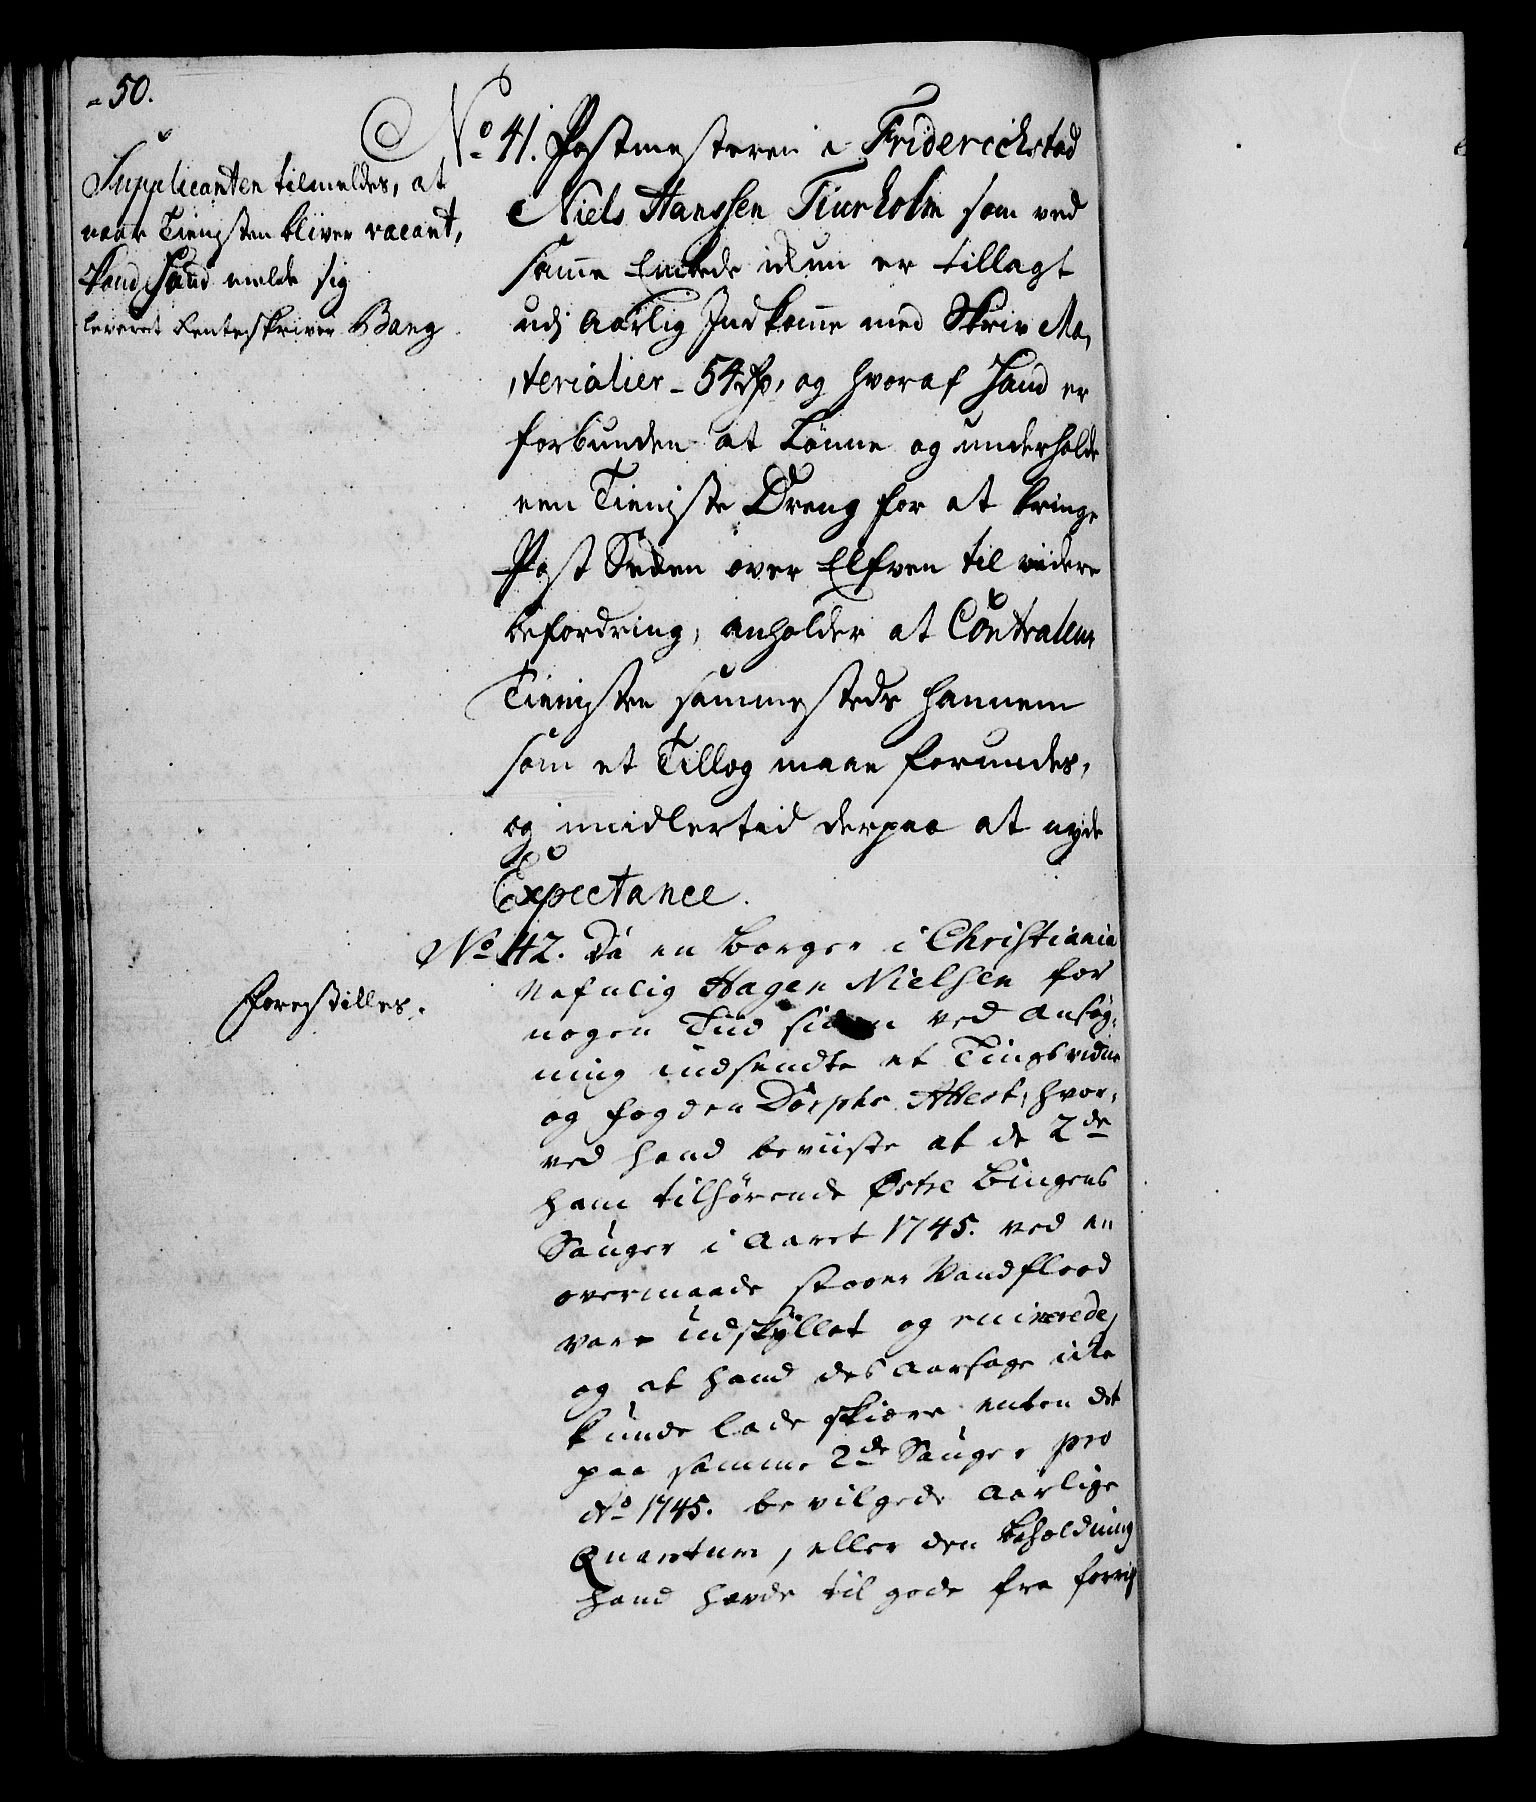 50.
Supplicanten tilmeldes, at
naar Tienesten bliver vacant,
kand Hand melde sig
leveret Renteskriver Bang
No 41. Postmesteren i Friderichstad
Niels Hanssen Tiurholm som ved
samme Embede ikun er tillagt
udj Aarlig Indkomme med Skriv Ma,
,terialier - 54 rd, og hvoraf Hand er
forbunden at Lönne og underholde
een Tieniste Dreng for at bringe
Post Sæken over Elfven til videre
befordring, anholder at Contralleur
Tienisten sammesteds hannem
som et Tillæg maae forundes,
og imidlertid derpaa at nyde
Expectance.
Forestilles.
No 42. Da en borger i Christiania
Nafnlig Hagen Nielsen for
nogen Tiid siden ved Ansøg,
ning indsendte et Tingsvidne
og fogden Dorphs Attest, hvor,
ved hand beviiste at de 2de
ham tilhørende Østre Bingens
Sauger i Aaret 1745. ved en
overmaade stoer Vandflood
vare udskyllet og ruinerede,
og at hand des Aarsage icke
kunde lade skiære enten det
paa samme 2de Sauger pro
Ao 1745. bevilgede Aarlige
Quantum, eller den beholdning
hand havde til gode fra forrig